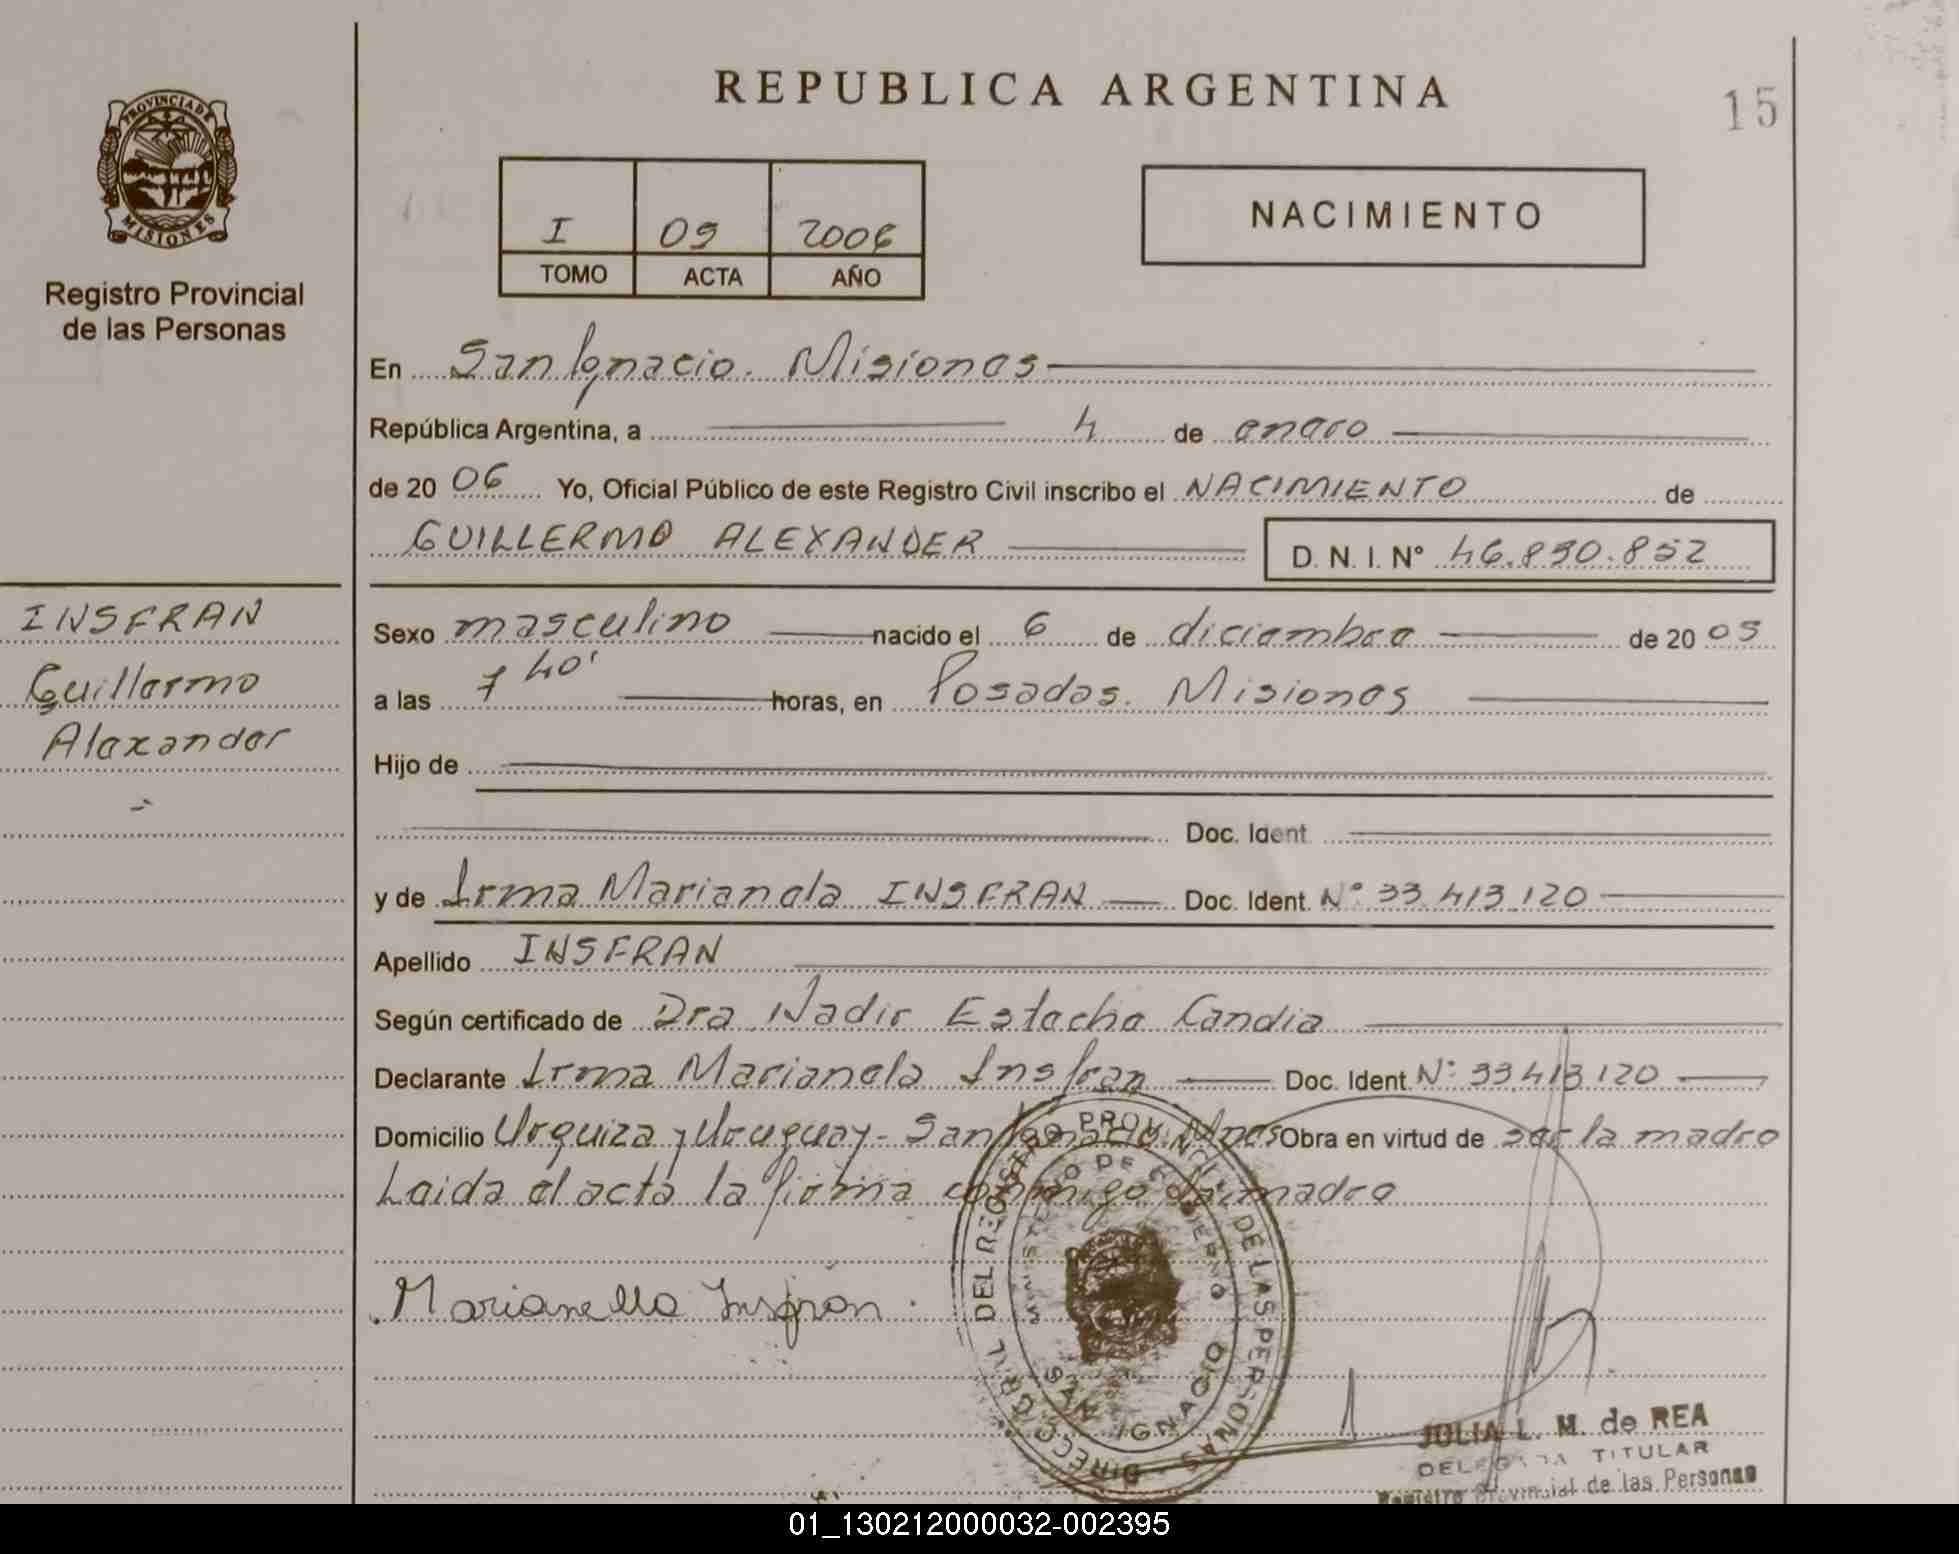 REPUBLICA ARGENTINA
15
PROVINCIA DE
MISIONES
Registro Provincial
de las Personas
I 09 2006
TOMO ACTA AÑO
NACIMIENTO
En San Ignacio. Misiones
República Argentina, a 4 de enero
de 20 06 Yo, Oficial Público de este Registro Civil inscribo el NACIMIENTO de
GUILLERMO ALEXANDER D. N. I. N° 46.830.852
INSFRAN
Guillermo
Alexander
Sexo masculino nacido el 6 de diciembre de 20 05
a las 7 40' horas, en Posadas. Misiones
Hijo de
Doc. Ident
y de Irma Marianela INSFRAN Doc. Ident. N° 33.413.120
Apellido INSFRAN
Según certificado de Dra Nadir Estecho Candia
Declarante Irma Marianela Insfran Doc. Ident N° 33.413.120
Domicilio Urquiza y Uruguay - San Ignacio. Mnes Obra en virtud de ser la madre
Leida el acta la firma conmigo la madre
Marianella Insfran.
DIRECC. GRAL DEL REGISTRO PROVINCIAL DE LAS PERSONAS
MINISTERIO DE GOBIERNO
SAN IGNACIO
JULIA L. M. de REA
DELEGADA TITULAR
Registro Provincial de las Personas
01_130212000032-002395